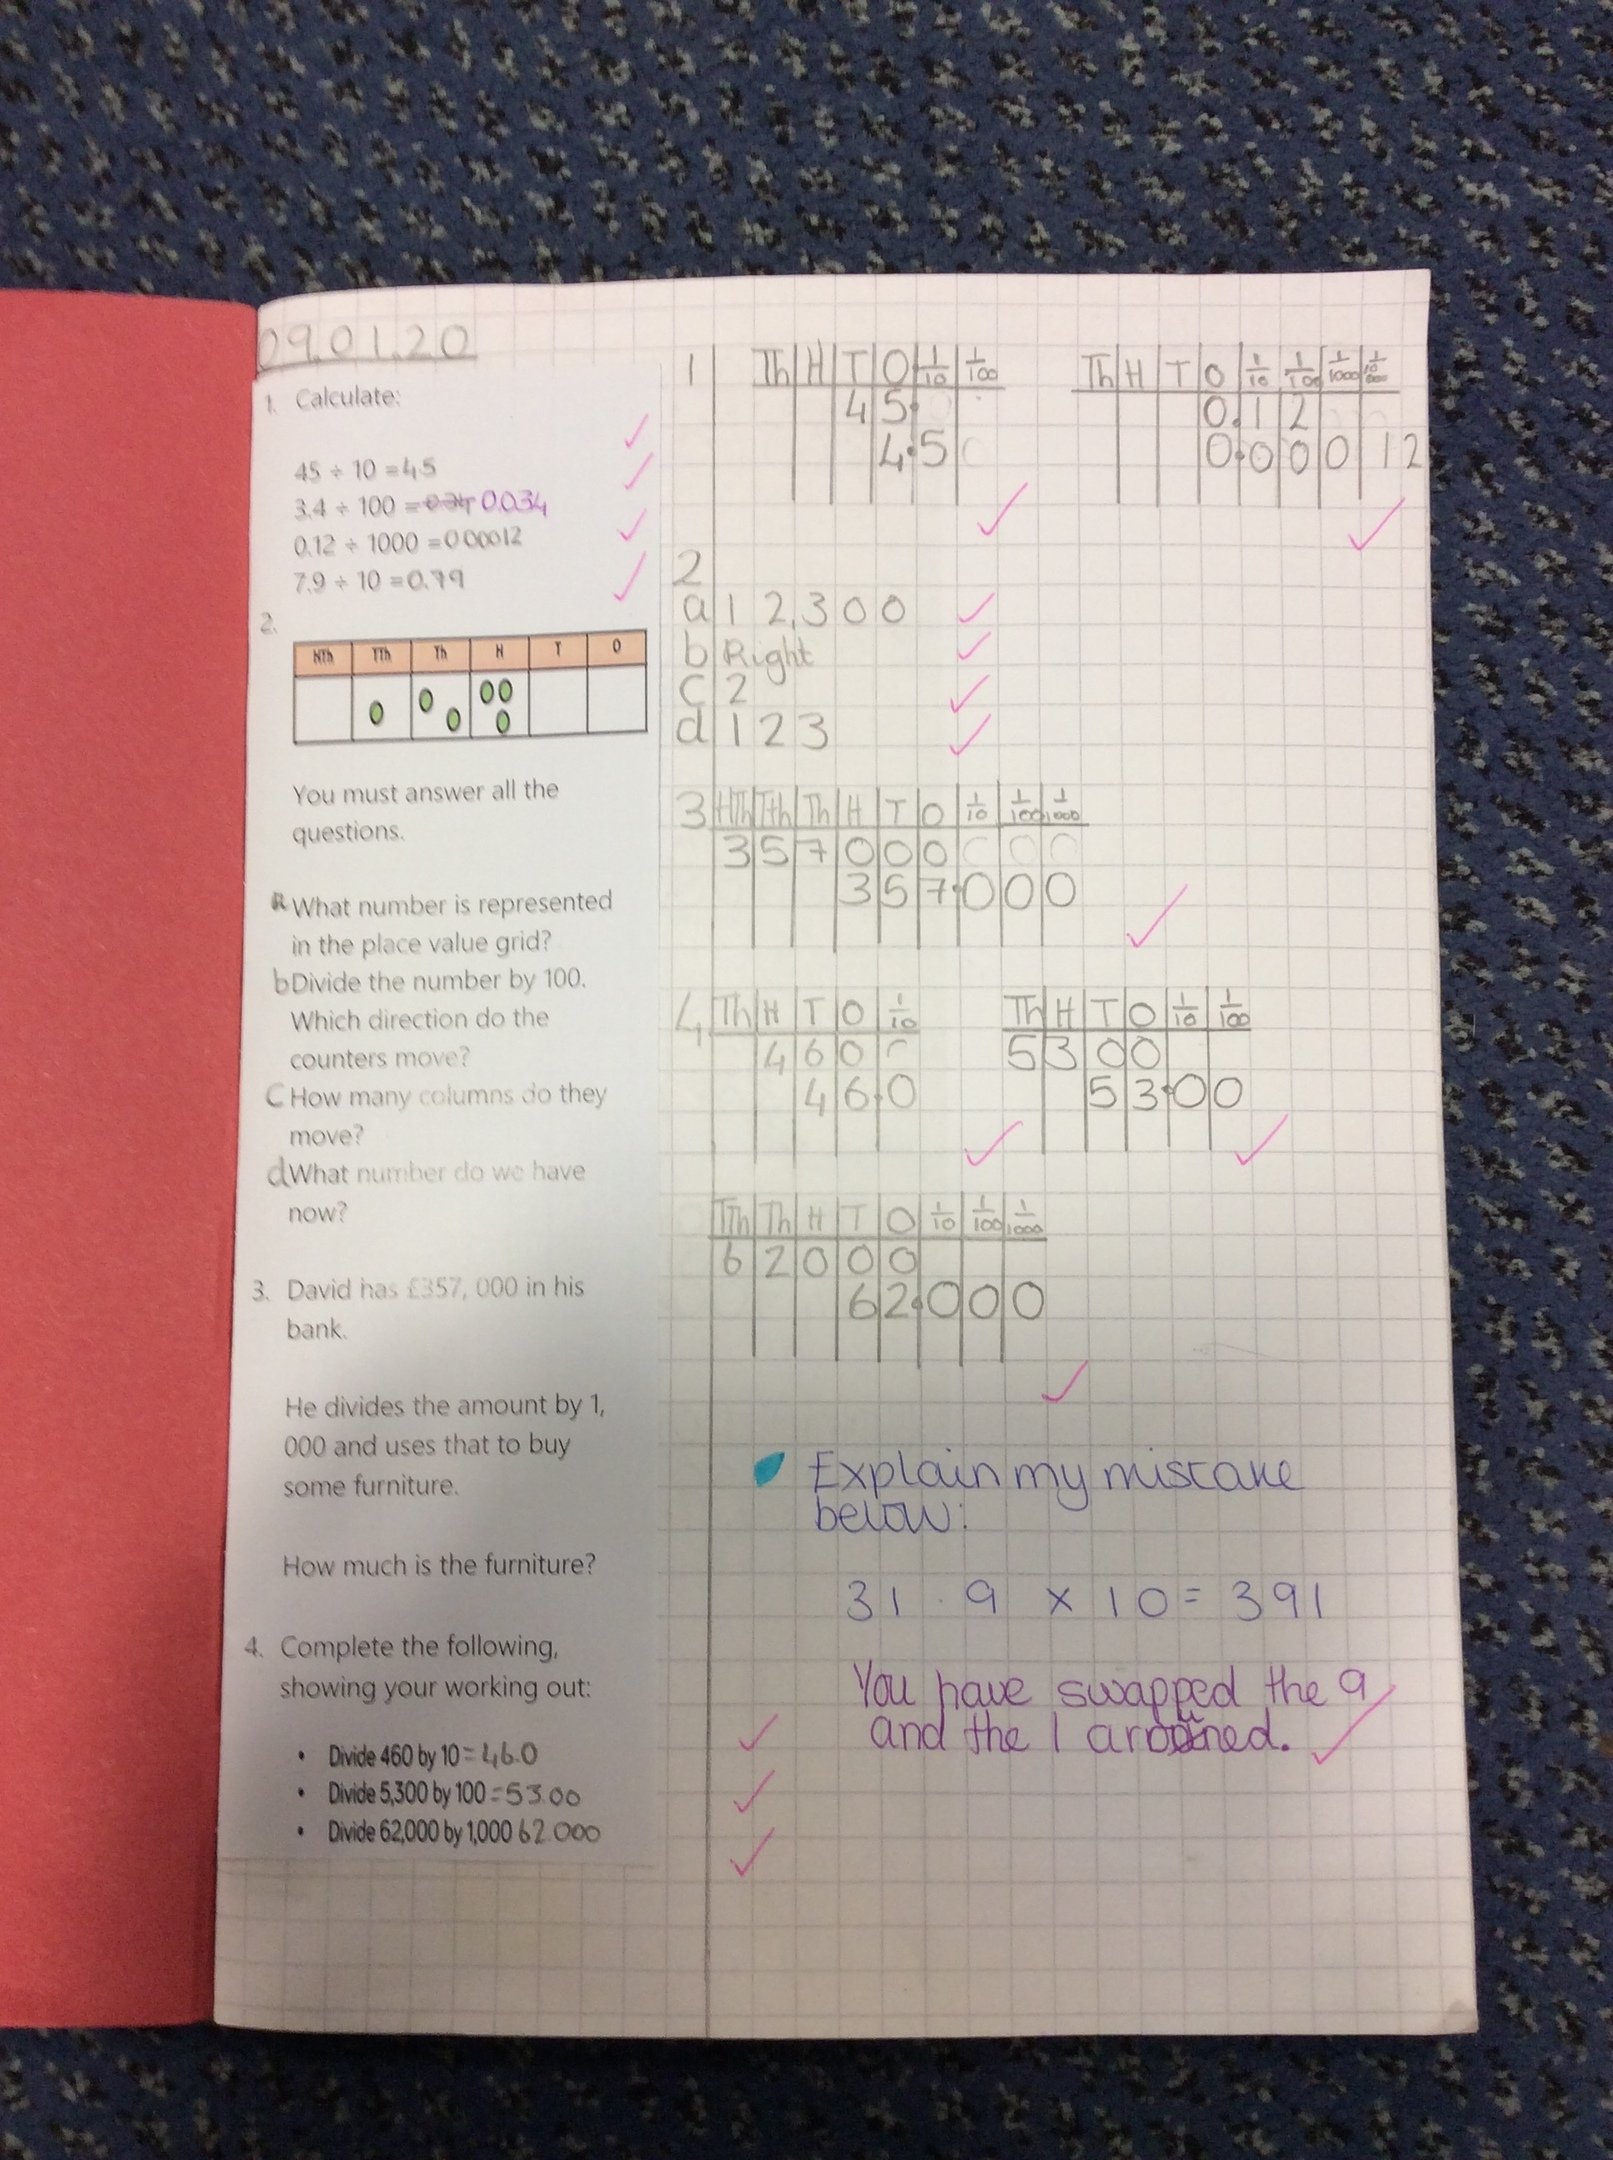 09.01.20
1. Calculate:
45 ÷ 10 = 4.5
3.4 ÷ 100 = 0.34 0.034
0.12 ÷ 1000 = 0.00012
7.9 ÷ 10 = 0.79
2.
HTh TTh Th H T O
You must answer all the
questions.
a What number is represented
in the place value grid?
b Divide the number by 100.
Which direction do the
counters move?
C How many columns do they
move?
d What number do we have
now?
3. David has £357, 000 in his
bank.
He divides the amount by 1,
000 and uses that to buy
some furniture.
How much is the furniture?
4. Complete the following,
showing your working out:
• Divide 460 by 10 = 46.0
• Divide 5,300 by 100 = 53.00
• Divide 62,000 by 1,000 62.000
1 Th H T O 1/10 1/100
4 5 . 0
4 . 5 0
Th H T O 1/10 1/100 1/1000 1/10000
0 . 1 2
0 . 0 0 0 1 2
2
a 1 2,3 0 0
b Right
c 2
d 1 2 3
3 HTh Tth Th H T O 1/10 1/100 1/1000
3 5 7 0 0 0 0 0 0
3 5 7 . 0 0 0
4 Th H T O 1/10
4 6 0 0
4 6 . 0
Th H T O 1/10 1/100
5 3 0 0
5 3 . 0 0
TTh Th H T O 1/10 1/100 1/1000
6 2 0 0 0
6 2 . 0 0 0
Explain my mistake
below:
31.9 x 10 = 391
You have swapped the 9
and the 1 arouned.